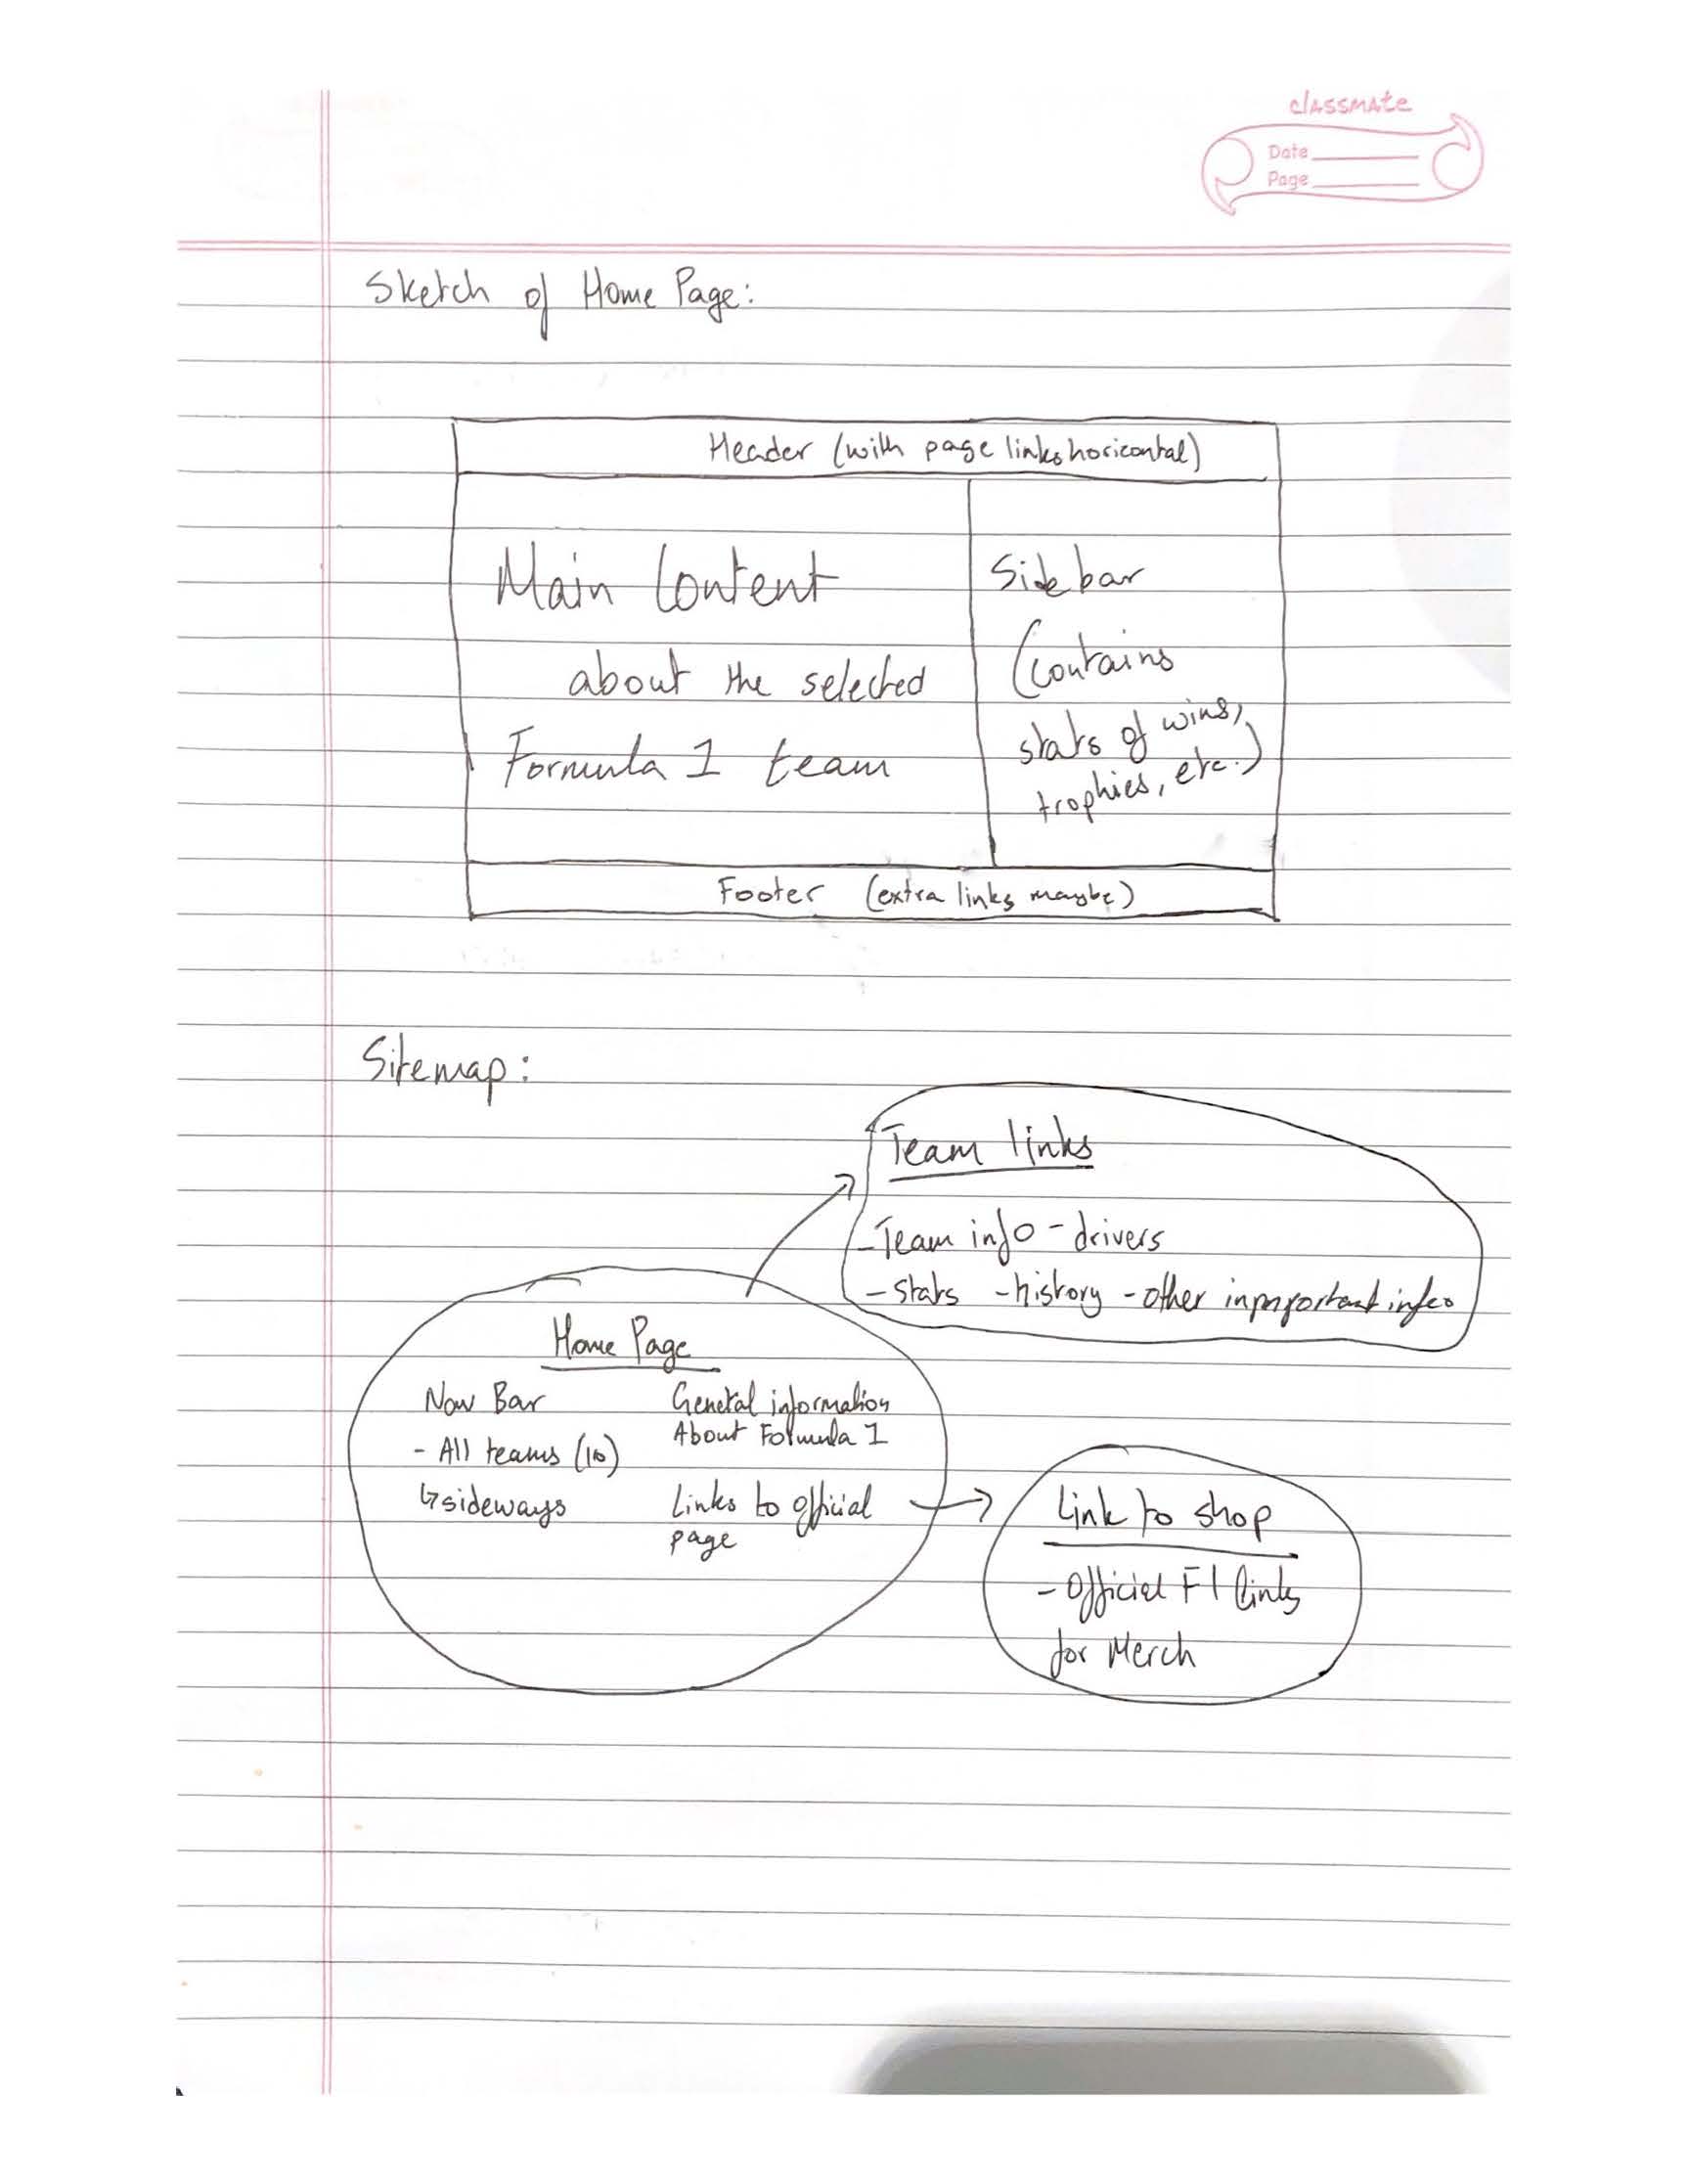 classmate
Date
Page
Sketch of Home Page:
Header (with page links horicontal)
Main Content
about the selected
Formula 1 team
Side bar
(contains
stats of wins,
trophies, etc.)
Footer (extra links maybe)
Sitemap:
Team links
- Team info - drivers
- stats - history - other info
Home Page
Nav Bar
- All teams (10)
↳ sideways
General information
About Formula 1
Links to official
page
Link to shop
- Official F1 links
for Merch